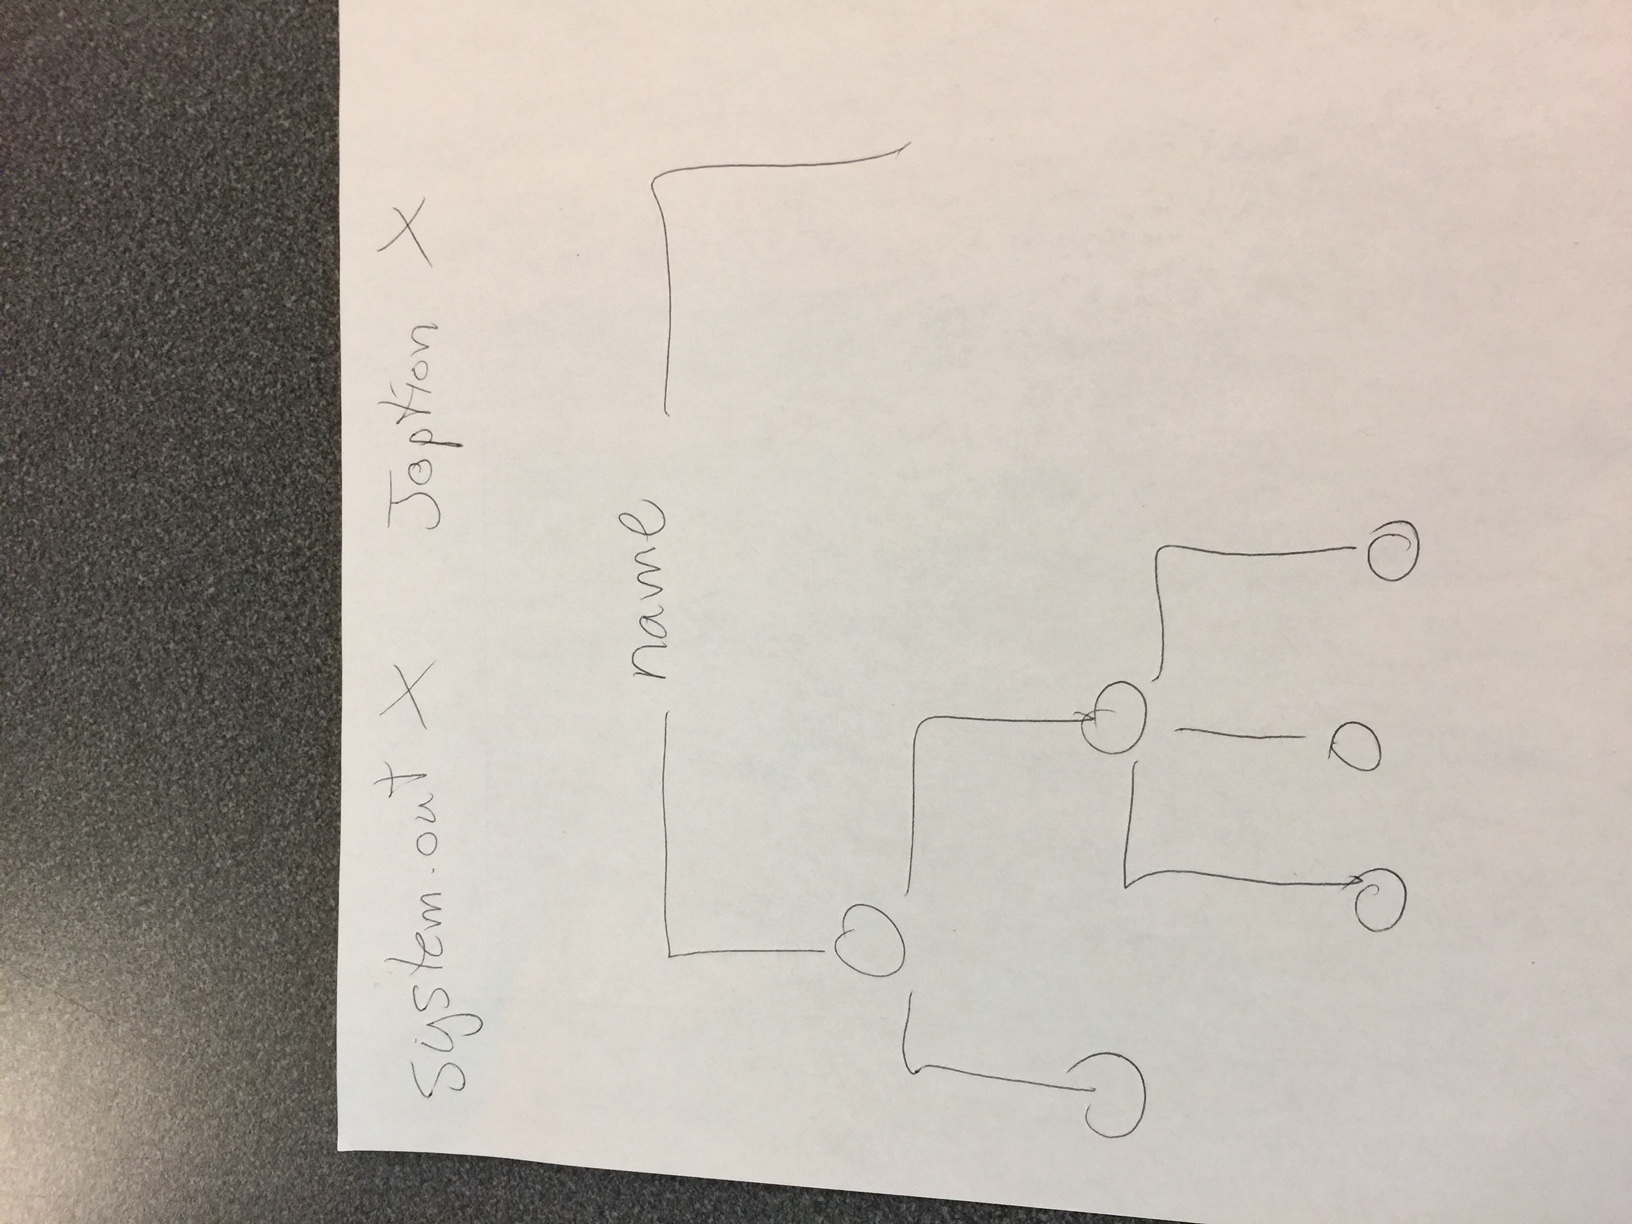 system.out X Joption X
name